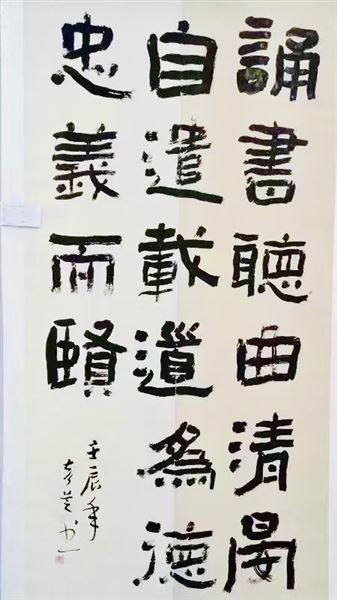 誦書聽曲清晏
自遣載道為德
忠義而賢
壬辰年
书